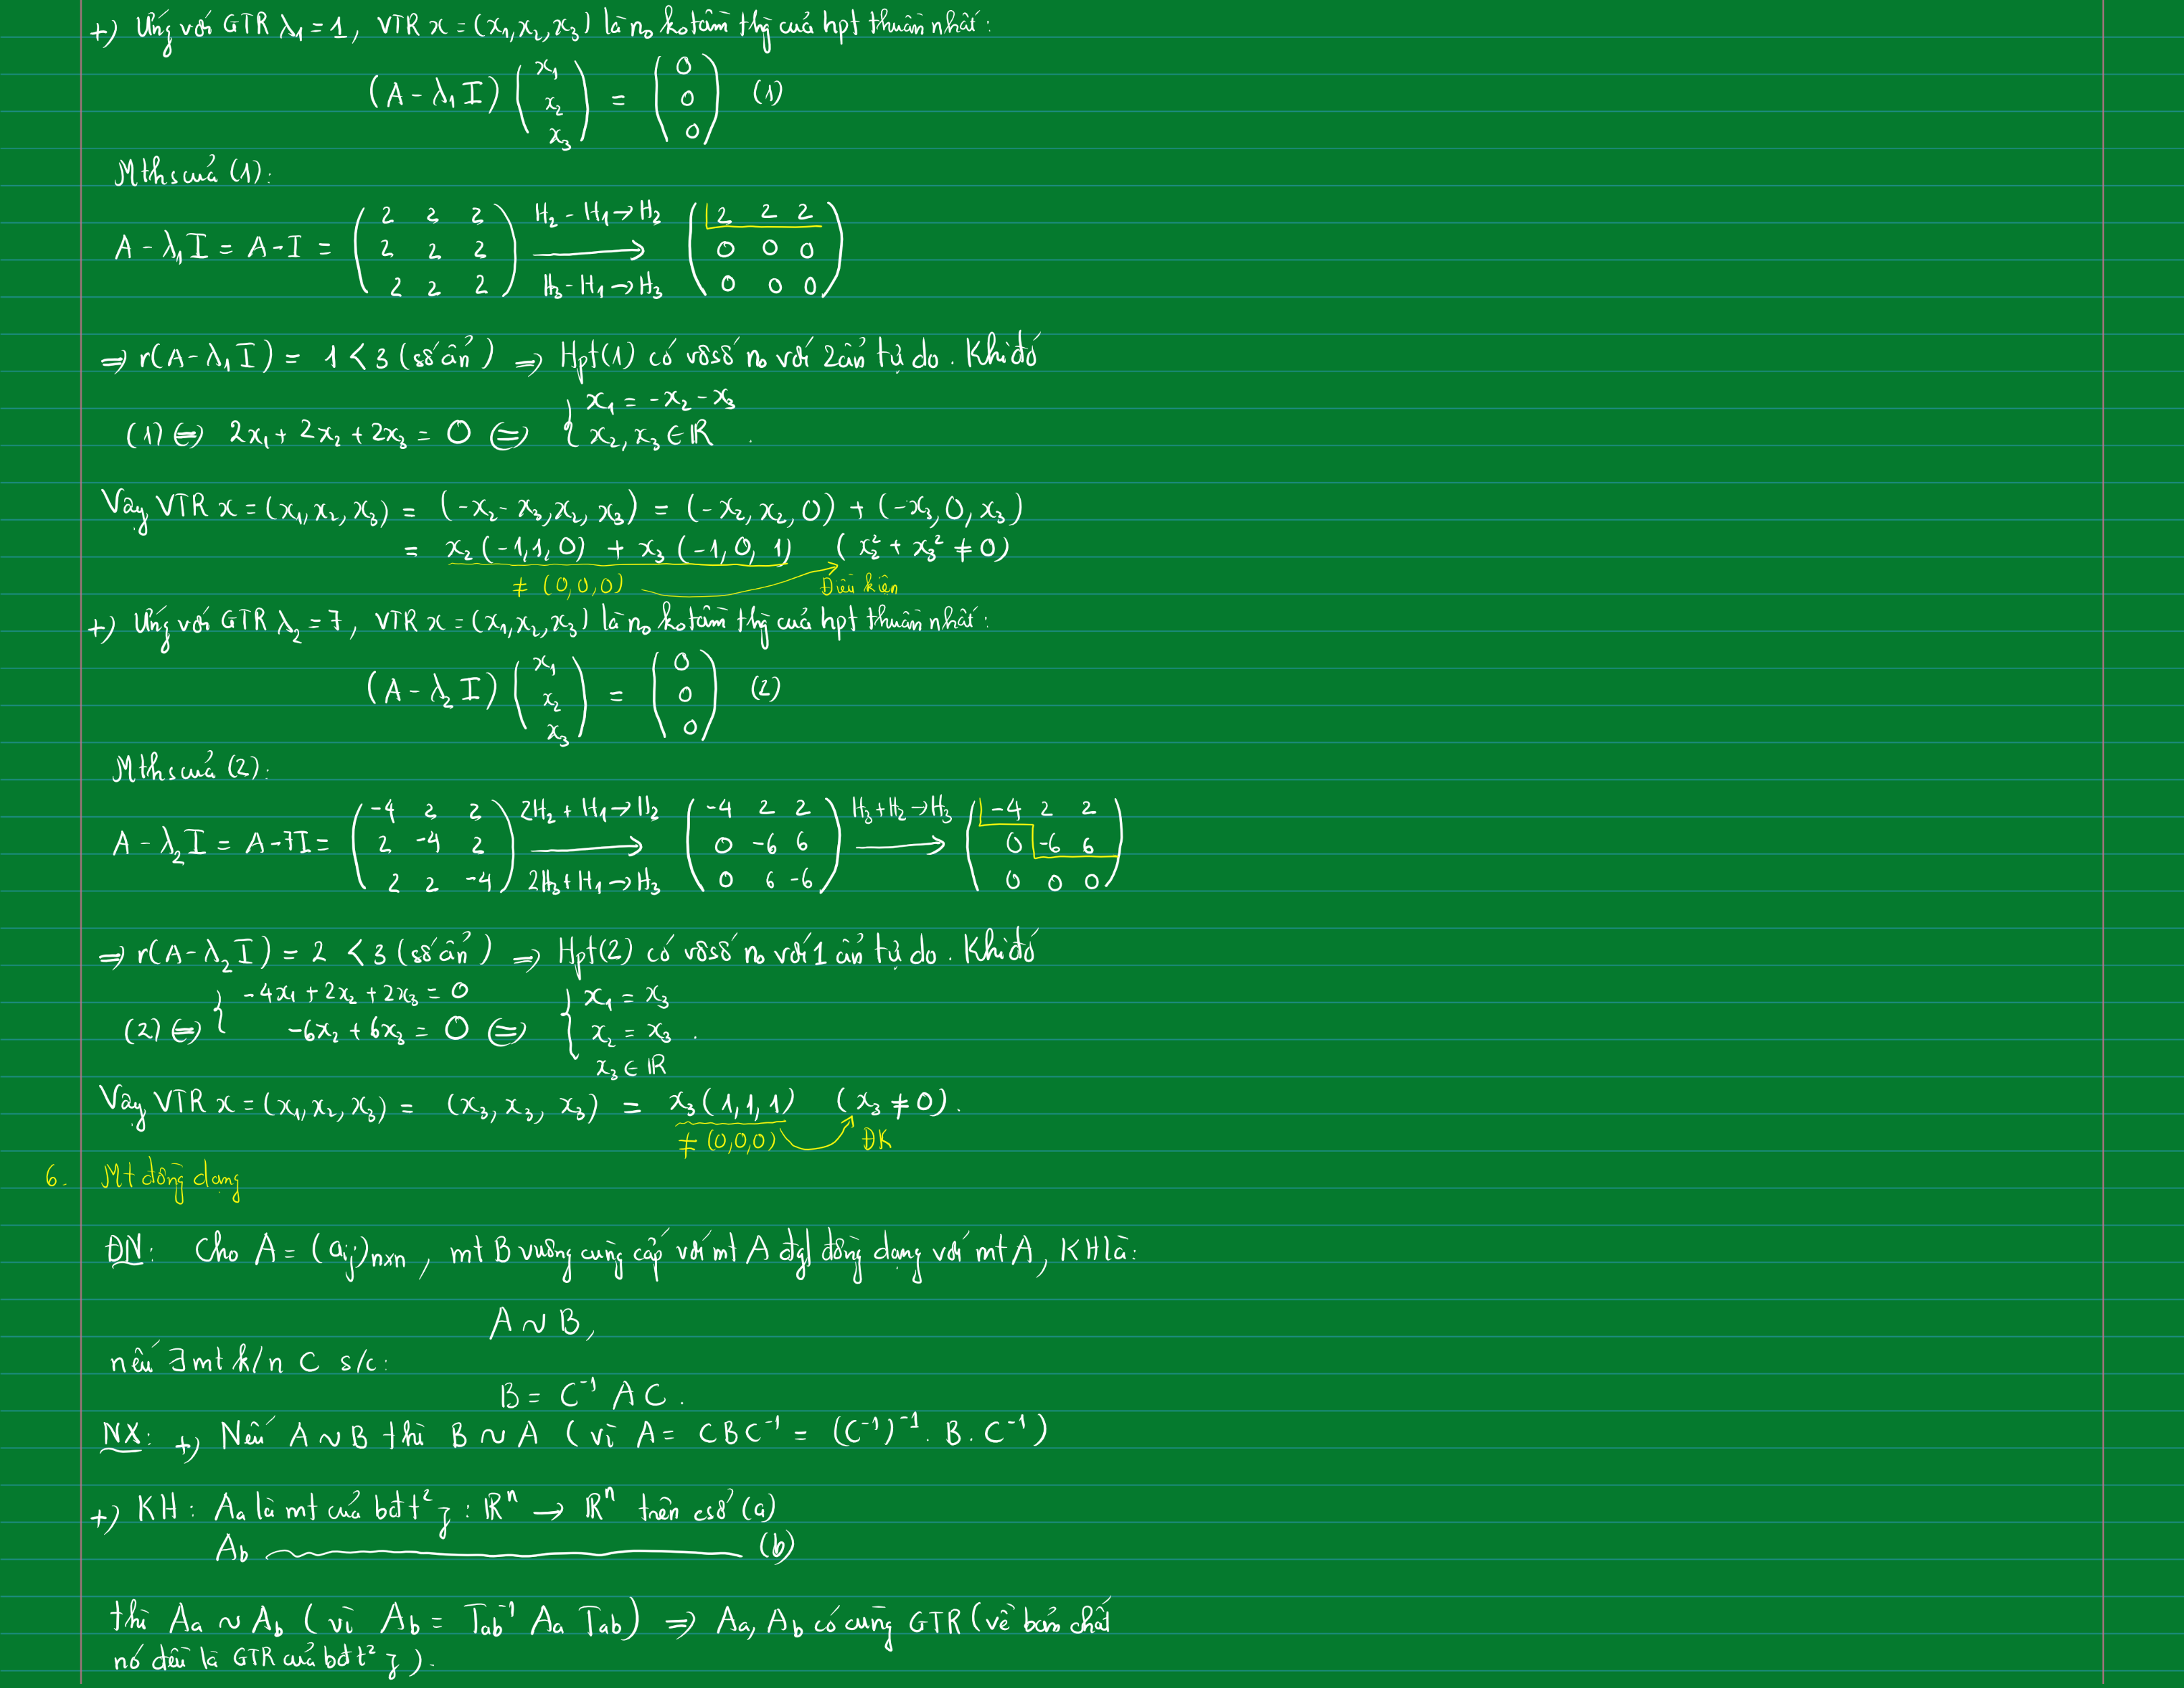 +) Ứng với GTR λ₁ = 1, VTR x = (x₁, x₂, x₃) là no ko tầm thg của hpt thuần nhất:
(A - λ₁I) (x₁ x₂ x₃) = (0 0 0) (1)
Mt hs của (1):
A - λ₁I = A - I = (2 2 2; 2 2 2; 2 2 2) H₂ - H₁ → H₂ H₃ - H₁ → H₃ (2 2 2; 0 0 0; 0 0 0)
⇒ r(A - λ₁I) = 1 < 3 (số ẩn) ⇒ Hpt(1) có vô số no với 2 ẩn tự do. Khi đó
(1) ⇔ 2x₁ + 2x₂ + 2x₃ = 0 ⇔ { x₁ = -x₂ - x₃; x₂, x₃ ∈ ℝ.
Vậy VTR x = (x₁, x₂, x₃) = (-x₂ - x₃, x₂, x₃) = (-x₂, x₂, 0) + (-x₃, 0, x₃)
= x₂(-1, 1, 0) + x₃(-1, 0, 1) (x₂² + x₃² ≠ 0)
≠ (0,0,0) Điều kiện
+) Ứng với GTR λ₂ = 7, VTR x = (x₁, x₂, x₃) là no ko tầm thg của hpt thuần nhất:
(A - λ₂I) (x₁ x₂ x₃) = (0 0 0) (2)
Mt hs của (2):
A - λ₂I = A - 7I = (-4 2 2; 2 -4 2; 2 2 -4) 2H₂ + H₁ → H₂ 2H₃ + H₁ → H₃ (-4 2 2; 0 -6 6; 0 6 -6) H₃ + H₂ → H₃ (-4 2 2; 0 -6 6; 0 0 0)
⇒ r(A - λ₂I) = 2 < 3 (số ẩn) ⇒ Hpt(2) có vô số no với 1 ẩn tự do. Khi đó
(2) ⇔ { -4x₁ + 2x₂ + 2x₃ = 0; -6x₂ + 6x₃ = 0 ⇔ { x₁ = x₃; x₂ = x₃; x₃ ∈ ℝ.
Vậy VTR x = (x₁, x₂, x₃) = (x₃, x₃, x₃) = x₃(1, 1, 1) (x₃ ≠ 0).
≠ (0,0,0) ĐK
6. Mt đồng dạng
ĐN: Cho A = (aij)n×n, mt B vuông cùng cấp với mt A đgl đồng dạng với mt A, KH là:
A ~ B,
nếu ∃ mt k/n C s/c:
B = C⁻¹ A C.
NX: +) Nếu A ~ B thì B ~ A (vì A = C B C⁻¹ = (C⁻¹)⁻¹. B. C⁻¹)
+) KH: Aa là mt của bđt² f: ℝⁿ → ℝⁿ trên csở (a)
Ab (b)
thì Aa ~ Ab (vì Ab = Tab⁻¹ Aa Tab) ⇒ Aa, Ab có cùng GTR (về bản chất
nó đều là GTR của bđt² f).